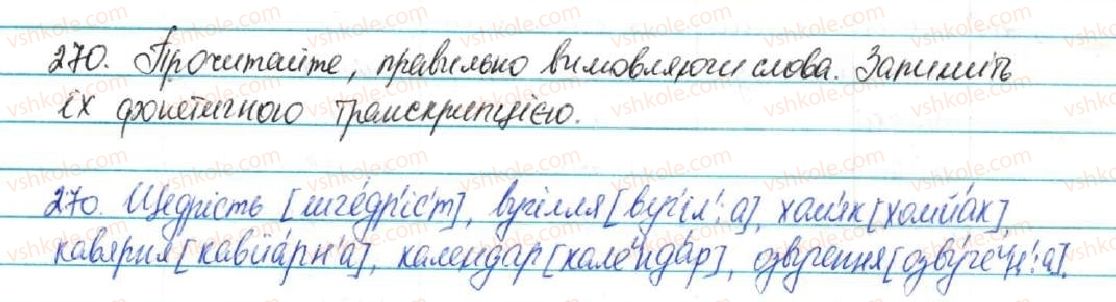 270. Прочитайте, правильно вимовляючи слова. Запишіть
їх фонетичного транскрипцією.
270. Щедрість [шче́др'іс'т'], вугілля [вуг'і́л':а], хом'як [хомйа́к],
кав'ярня [кавйа́рн'а], календар [кале^нда́р], озвучення [озву́че^нн':а].